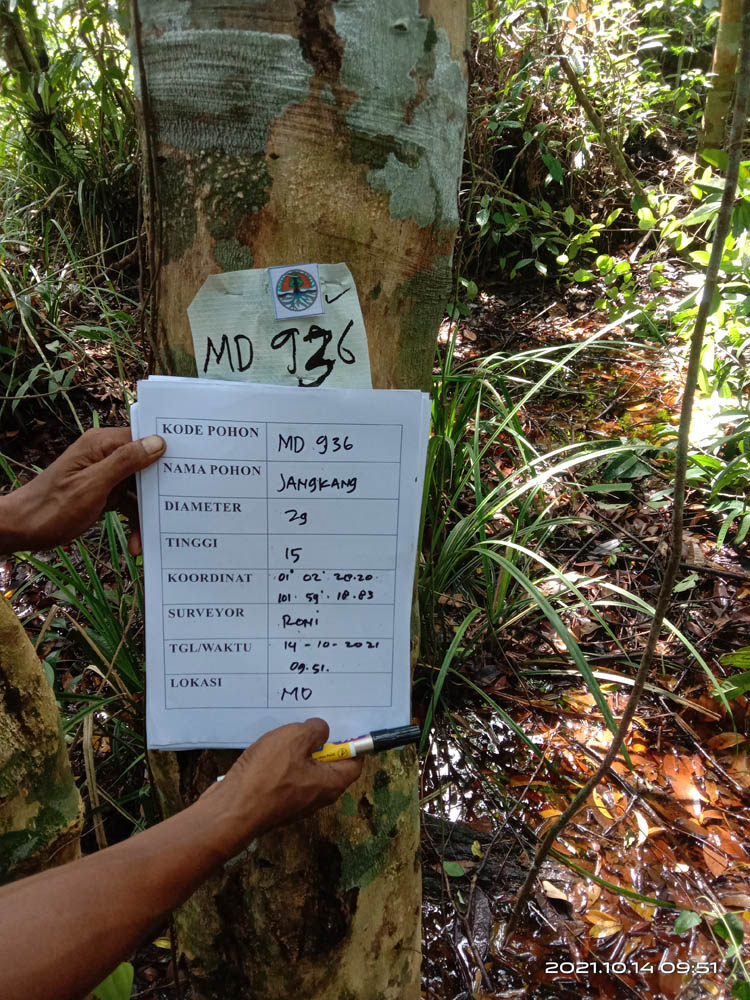 MD 936
KODE POHON MD 936
NAMA POHON JANGKANG
DIAMETER 29
TINGGI 15
KOORDINAT 01° 02' 28.20
101. 59'. 18.83
SURVEYOR RONI
TGL/WAKTU 14-10-2021
09.51.
LOKASI MD
2021.10.14 09:51